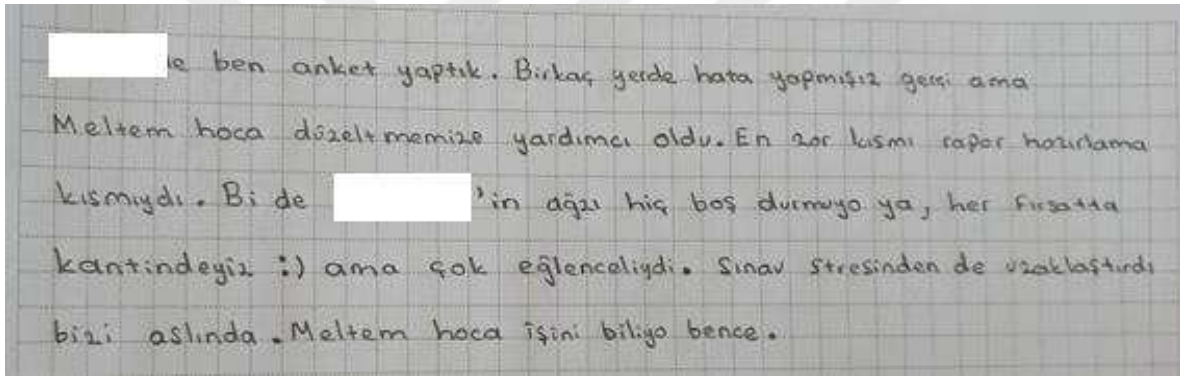 le ben anket yaptık. Birkaç yerde hata yapmışız gerçi ama
Meltem hoca düzeltmemize yardımcı oldu. En zor kısmı rapor hazırlama
kısmıydı. Bi de 'in ağzı hiç boş durmuyo ya, her fırsatta
kantindeyiz :) ama çok eğlenceliydi. Sınav stresinden de uzaklaştırdı
bizi aslında. Meltem hoca işini biliyo bence.